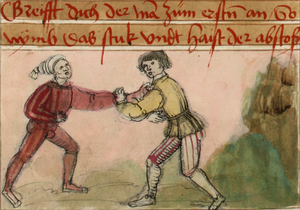 Greifft dich der ma zum erstn an so
nymb das stuk vndt haist der abstoß